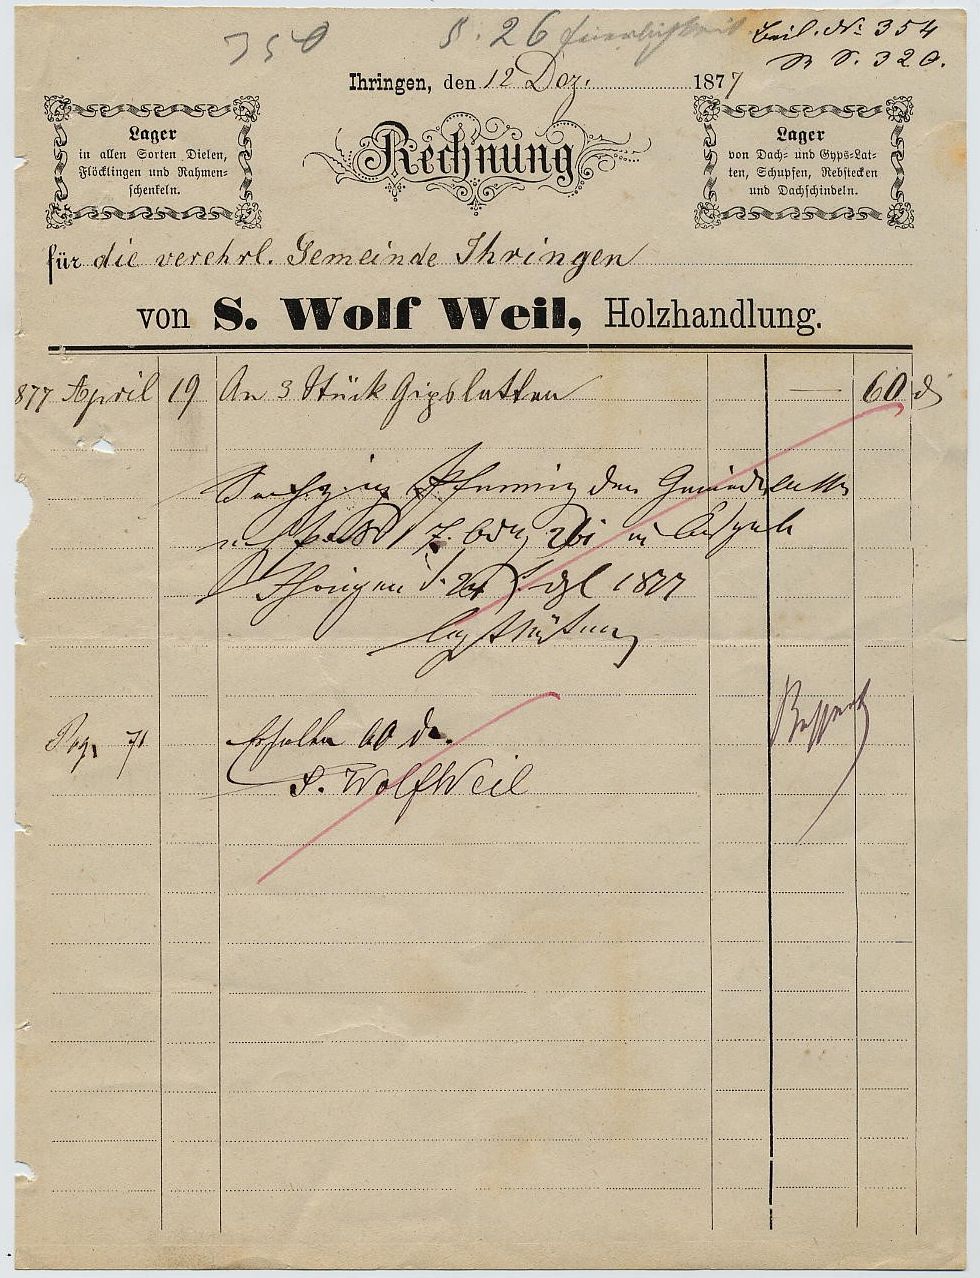 350
S. 26
Beil. No. 354
R S. 320.
Ihringen, den 12 Dez. 1877
Lager
in allen Sorten Dielen,
Flöcklingen und Rahmen-
schenkeln.
Rechnung
Lager
von Dach- und Gyps-Lat-
ten, Schupfen, Rebstecken
und Dachschindeln.
für die verehrl. Gemeinde Ihringen
von S. Wolf Weil, Holzhandlung.
877 April 19 An 3 Stück Gipslatten — 60 d
Sechzig Pfennig
in Ausgab
Ihringen d. 24 1877
Erhalten 60 d.
S. Wolf Weil